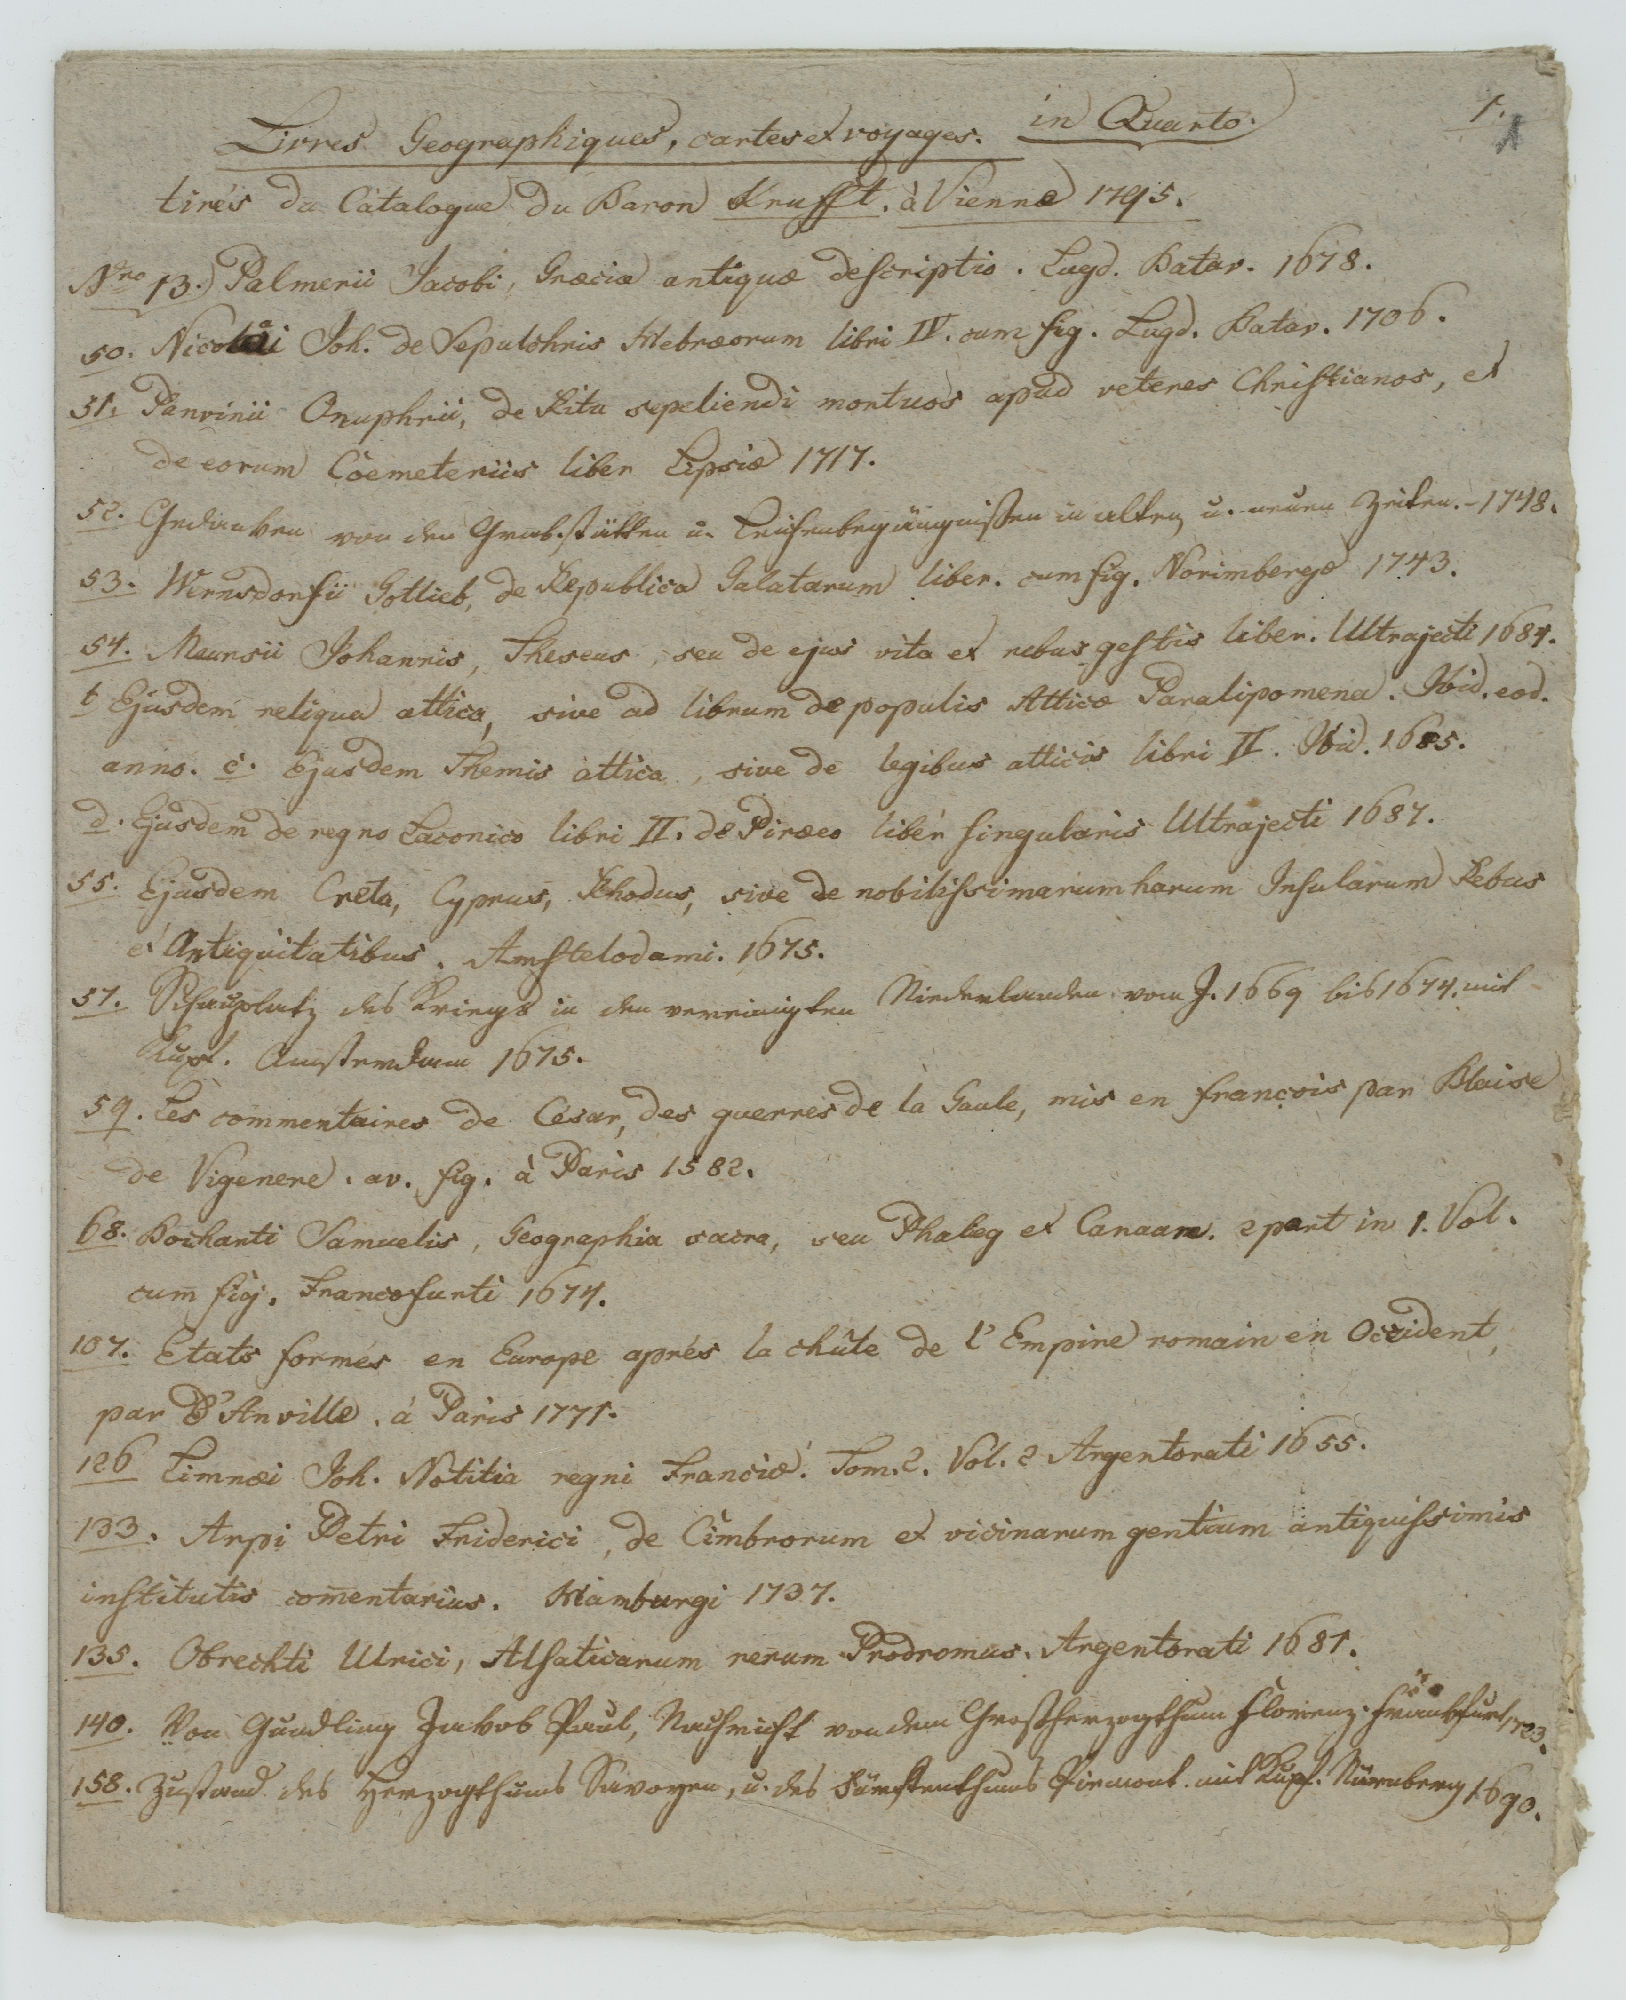 1.
1
Livres Geographiques, cartes et voyages. in Quarto.
tirés du Catalogue du Baron Krufft. à Vienne 1795.
Nro 13.) Palmerii Jacobi, Græciæ antiquæ descriptio. Lugd. Batav. 1678.
50. Nicolai Joh. de Sepulchris Hebræorum libri IV. cum fig. Lugd. Batav. 1706.
51. Panvinii Onuphrii, de Ritu sepeliendi mortuos apud veteres Christianos, et
de eorum Coemeteriis liber Lipsiæ 1717.
52. Gedanken von den Grabstätten u. Leichenbegängnißen in alten u. neuen Zeiten. - 1748.
53. Wernsdorfii Gotlieb, de Republica Galatarum liber. cum fig. Norimbergæ 1743.
54. Meursii Johannis, Theseus, seu de ejus vita et rebus gestis liber. Ultrajecti 1684.
b Ejusdem reliqua attica, sive ad librum de populis Atticæ Paralipomena. Ibid. eod.
anno. c. Ejusdem Themis attica, sive de legibus atticis libri II. Ibid. 1685.
d. Ejusdem de regno Laconico libri II. de Piræeo liber singularis Ultrajecti 1687.
55. Ejusdem Creta, Cyprus, Rhodus, sive de nobilissimarum harum Insularum Rebus
et Antiquitatibus. Amstelodami. 1675.
57. Schauplatz des Kriegs in den vereinigten Niederlanden vom J. 1669 bis 1674. mit
Kupf. Amsterdam 1675.
59. Les commentaires de César, des guerres de la Gaule, mis en françois par Blaise
de Vigenere. av. fig. à Paris 1582.
68. Bocharti Samuelis, Geographia sacra, seu Phaleg et Canaan. 2 part in 1. Vol.
cum fig. Francofurti 1674.
107. Etats formés en Europe aprés la chûte de l'Empire romain en Occident,
par D'Anville. à Paris 1771.
126 Limnæi Joh. Notitia regni Franciæ. Tom. 2. Vol. 2 Argentorati 1655.
133. Arpi Petri Friderici, de Cimbrorum et vicinarum gentium antiquissimis
institutis com̄entarius. Hamburgi 1737.
135. Obrechti Ulrici, Alsaticarum rerum Prodromus. Argentorati 1681.
140. Von Gundling Jakob Paul, Nachricht von dem Großherzogthum Florenz. Frankfurt 1723.
158. Zustand des Herzogthums Savoyen, u. des Fürstenthums Piemont. mit Kupf. Nürnberg 1690.